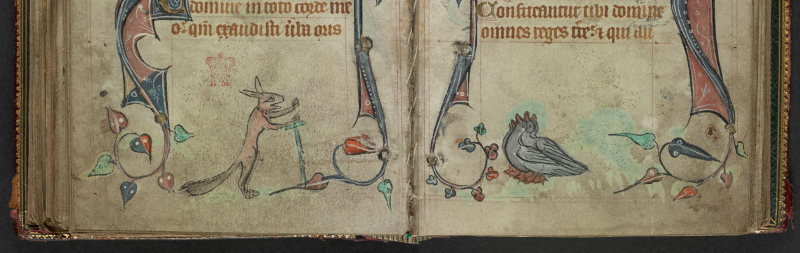 domine in toto corde me
o: qm̄ exaudisti ūba oris
Confiteantur tibi domine
omnes reges tr̄e: qui au